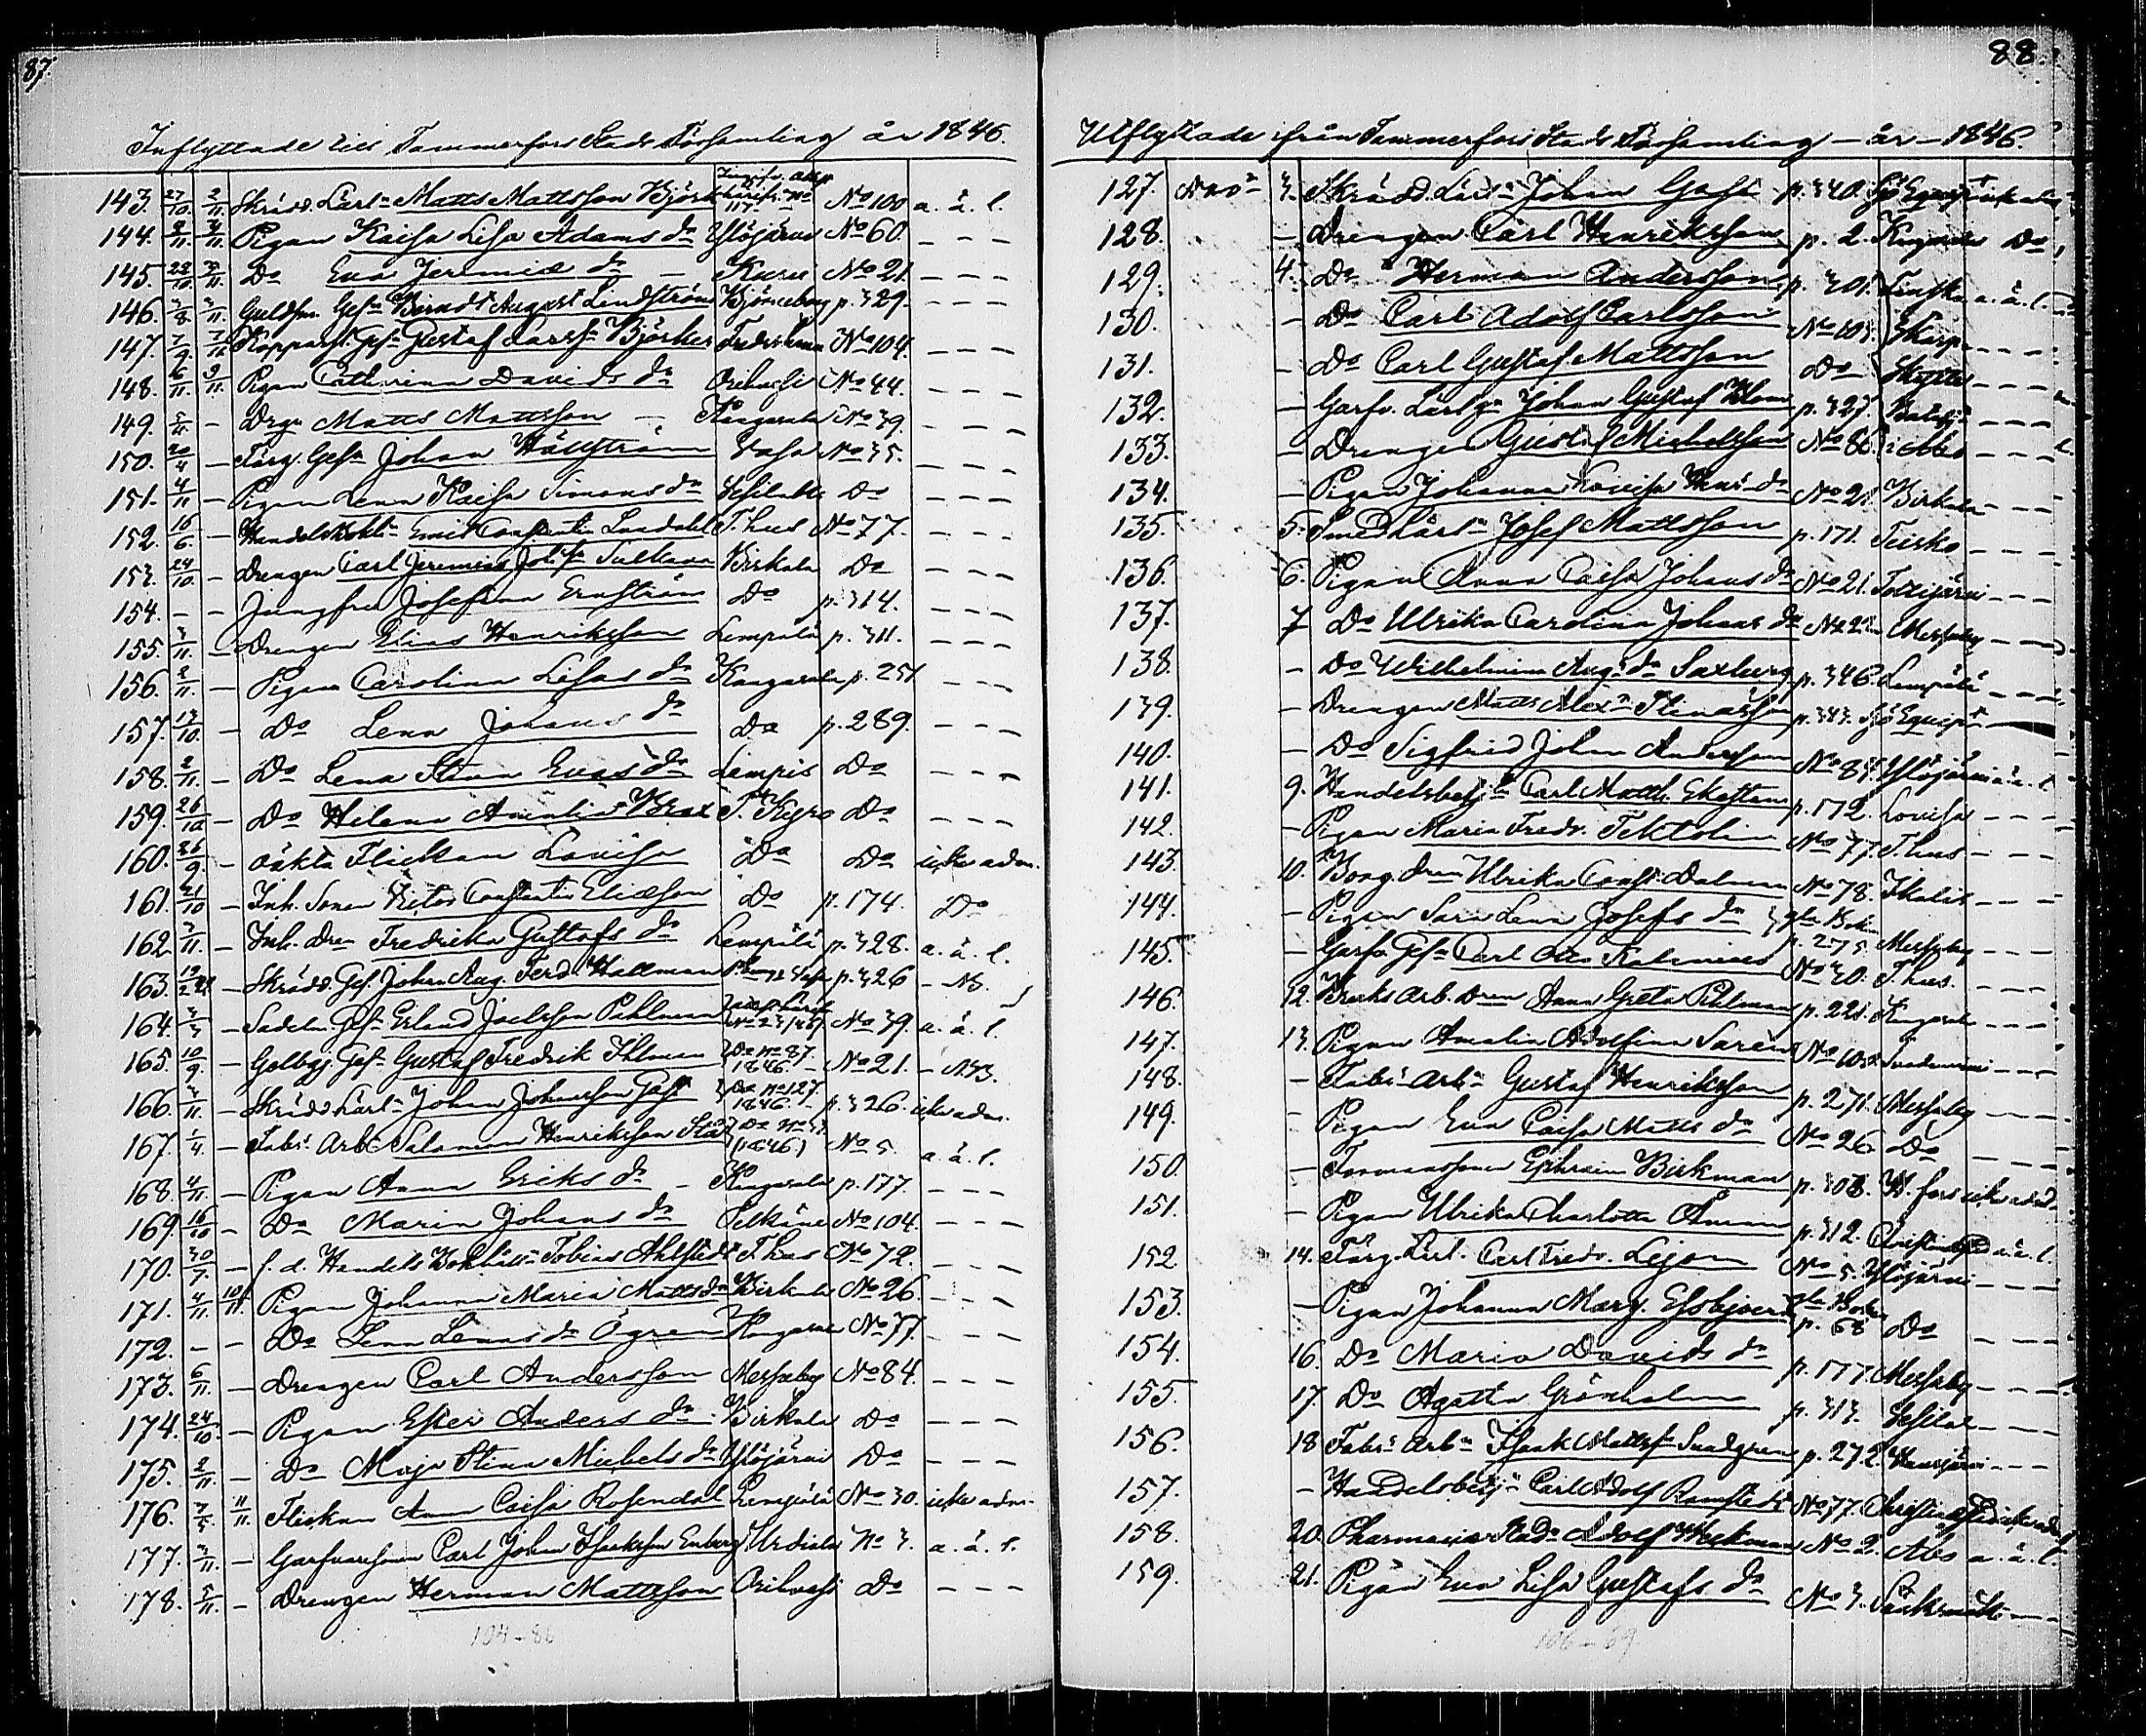 87.
Inflyttade till Tammerfors Stads Församling år 1846.
143. 27/10. 2/11. Skrädd. Lärl. Matts Mattsson Björk No 100 a. ä. l.
144. 2/11. 3/11. Pigan Kaisa Lisa Adams dr Ylöjärvi No 60. - - -
145. 28/10. 3/11. Do Eva Jeremiæ dr - Kuru No 21. - - -
146. 3/8. 3/11. Guldsm. Gesn Berndt August Lindström Björneborg p. 329. - - -
147. 7/9. 7/11. Kopparsl. Gesn Gustaf Larssn Björker No 104. - - -
148. 6/11. 9/11. Pigan Cathrina Davids dr Orihvesi No 44. - - -
149. 5/11. - Drgn Matts Mattsson - Kangasala No 39. - - -
150. 20/4 - Färg. Gesn Johan Hällström Vasa No 35. - - -
151. 4/11 - Pigan Lena Kaisa Simons dr Do - - -
152. 16/6. - Handelsbokh. Emil Constantin T.hus No 77. - - -
153. 24/10. - Drengen Carl Jeremias Johsn Birkala Do - - -
154. - - Jungfru Josefina Ernström Do p. 314. - - -
155. 3/11. - Drengen Elias Henriksson Lempälä p. 311. - - -
156. 2/11. - Pigan Carolina Lisas dr Kangasala p. 251 - - -
157. 13/10. - Do Lena Johans dr Do p. 289. - - -
158. 2/11. - Do Lena Stina Evas dr Lempis Do - - -
159. 26/10 - Do Helena Amalia Brax T. Kyro Do - - -
160. 26/9. - oäkta Flickan Lovisa Do Do icke adm.
161. 21/10 - Inh. Sonen Victor Constantin Eliæson Do p. 174. Do
162. 3/11. - Inh. drn Fredrika Gustafs dr Lempälä p. 328. a. ä. l.
163. - Skrädd. Ges. Johan Aug. Ferd. Hallman p. 326 - NB.
164. 3/3 - Sadelm. Gesn Erland Joelsson Pihlman No 39. a. ä. l.
165. 10/9. - Gelbgj. Gesn Gustaf Fredrik Ihlman Do No 87. 1846. - No 21. - NB.
166. 3/11. - Skrädd. Lärl. Johan Johansson Gast Do No 127. 1846. - p. 326. icke adm.
167. 1/4. - Fabr. Arb. Salomon Henriksson (1846) No 5. a. ä. l.
168. 4/11. - Pigan Anna Eriks dr - Kangasala p. 177. - - -
169. 16/10 - Do Maria Johans dr No 104. - - -
170. 30/7. - f. d. Handels Bokhåll. Tobias Ahlstedt T.hus No 72. - - -
171. 4/11. 10/11. Pigan Johanna Maria Matts dr Birkala No 26 - - -
172. - - Do Lena Lenas dr Ögren No 77. - - -
173. 6/11. - Drengen Carl Andersson Messuby No 84. - - -
174. 24/10. - Pigan Ester Anders dr Birkala Do - - -
175. 2/11. - Do Maja Stina Michels dr Ylöjärvi Do - - -
176. 7/5. 11/11. Flickan Anna Caisa Rosendal Lempälä No 30. icke adm.
177. 3/11. - Garfvaresonen Carl Johan Isaksson Enberg Urdiala No 3. a. ä. l.
178. 5/11. - Drengen Herman Mattsson Orihvesi Do - - -
104-86
88.
Utflyttade ifrån Tammerfors Stads Församling - år - 1846.
127. 3. Skrädd. Lärl. Johan Gast p. 340. Sjö Equip.
128. - Drengen Carl Henriksson p. 2. Do
129. 4. Do Herman Andersson p. 301. a. ä. l.
130. - Do Carl Adolf Carlsson No 103. Skarp - - -
131. - Do Carl Gustaf Mattsson Do Skytte - - -
132. - Garfv. Lärlgn Johan Gustaf Blom p. 327. - - -
133. - Drengen Gustaf Michelsson No 86. i Åbo - - -
134. - Pigan Johanna Lovisa dr No 21. Birkala - - -
135. 5. Smed Lärl. Josef Mattsson p. 171. Teisko - - -
136. 6. Pigan Anna Caisa Johans dr No 21. Tottijärvi - - -
137. 7 Do Ulrika Carolina Johans dr Messuby - - -
138. - Do Wilhelmina Augs dr Saxberg p. 346. Lempälä - - -
139. - Drengen Matts Alexn p. 343. Sjö Equip. -
140. - Do Sigfrid Johan Andersson No 84. Ylöjärvi a. ä. l.
141. 9. Handelsbetj. Carl Matth. Ekestam p. 172. Lovisa - - -
142. - Pigan Maria Fredr. Tektolin No 77. T.hus - - -
143. 10. Borg. drn Ulrika Const. Dalman No 78. Ikalis - - -
144. - Pigan Sara Lena Josefs dr gla Boken p. 275. Messuby - - -
145. - Garfv. Gesn Carl Otto No 30. T.hus. - - -
146. 12. Bruks Arb. drn Anna Greta Pihlman p. 221. Kangasala - - -
147. 13. Pigan Amalia Adolfina Saren - - -
148. - Fabr. Arb. Gustaf Henriksson p. 271. Messuby - - -
149. - Pigan Eva Caisa Matts dr No 26 Do - - -
150. - Formanssonen Ephraim Birkman p. 308. H.fors icke adm.
151. - Pigan Ulrika Charlotta Åman p. 312. a. ä. l.
152 14. Färg. Lärl. Carl Fredr. Lejon No 5. Ylöjärvi - - -
153. - Pigan Johanna Marg. gla Boken p. 68 Do - - -
154. 16. Do Maria Davids dr p. 177 Messuby - - -
155. 17. Do Agatha Grönholm p. 313. - - -
156. 18 Fabr. Arb. Isaak Mattssn p. 272. - - -
157. - Handelsbetj. Carl Adolf Ramstedt No 77.
158. 20. Pharmacie Stud. Adolf No 2. Åbo a. ä. l.
159. 21. Pigan Eva Lisa Gustafs dr No 3. Sääksmäki - -
106-69